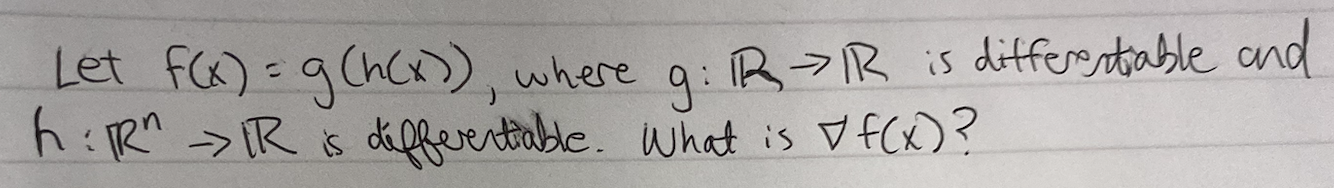 Let f(x) = g(h(x)), where g: ℝ → ℝ is differentiable and
h: ℝⁿ → ℝ is differentiable. What is ∇f(x)?